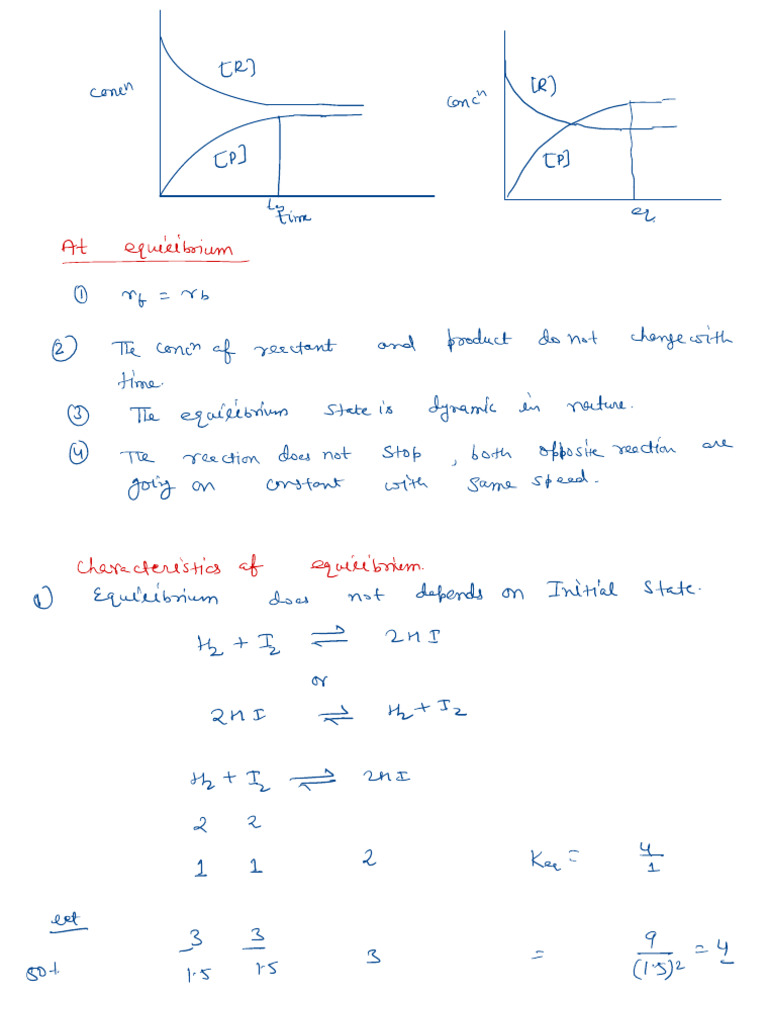 Concn
[R]
[P]
time
Concn
[R]
[P]
eq.
At equilibrium
① rf = rb
② The concn of reectant and product do not change with
time.
③ The equilibrium state is dynamic in nature.
④ The reection does not stop, both opposite reection are
going on constant with same speed.
Characteristics of equilibrium.
① Equilibrium does not depends on Initial State.
H2 + I2 ⇌ 2HI
or
2HI ⇌ H2 + I2
H2 + I2 ⇌ 2HI
2 2
1 1 2 Keq = 4/1
3 3
1.5 1.5 3 = 9/(1.5)2 = 4